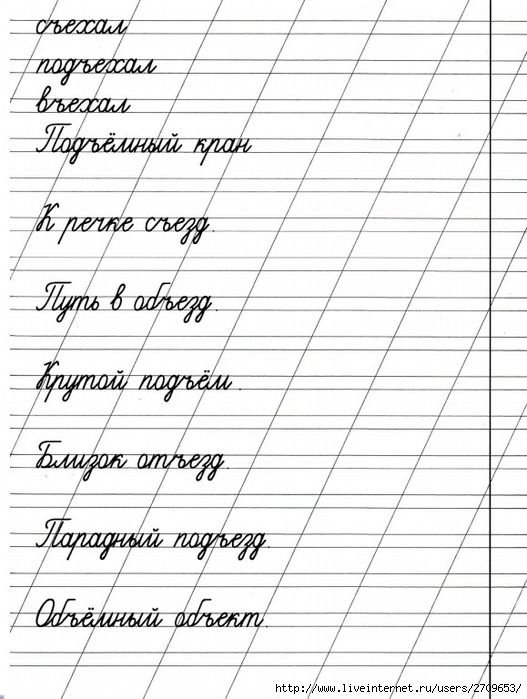 съехал
подъехал
въехал
Подъёмный кран
К речке съезд.
Путь в объезд.
Крутой подъём.
Близок отъезд.
Парадный подъезд.
Объёмный объект.
http://www.liveinternet.ru/users/2709653/